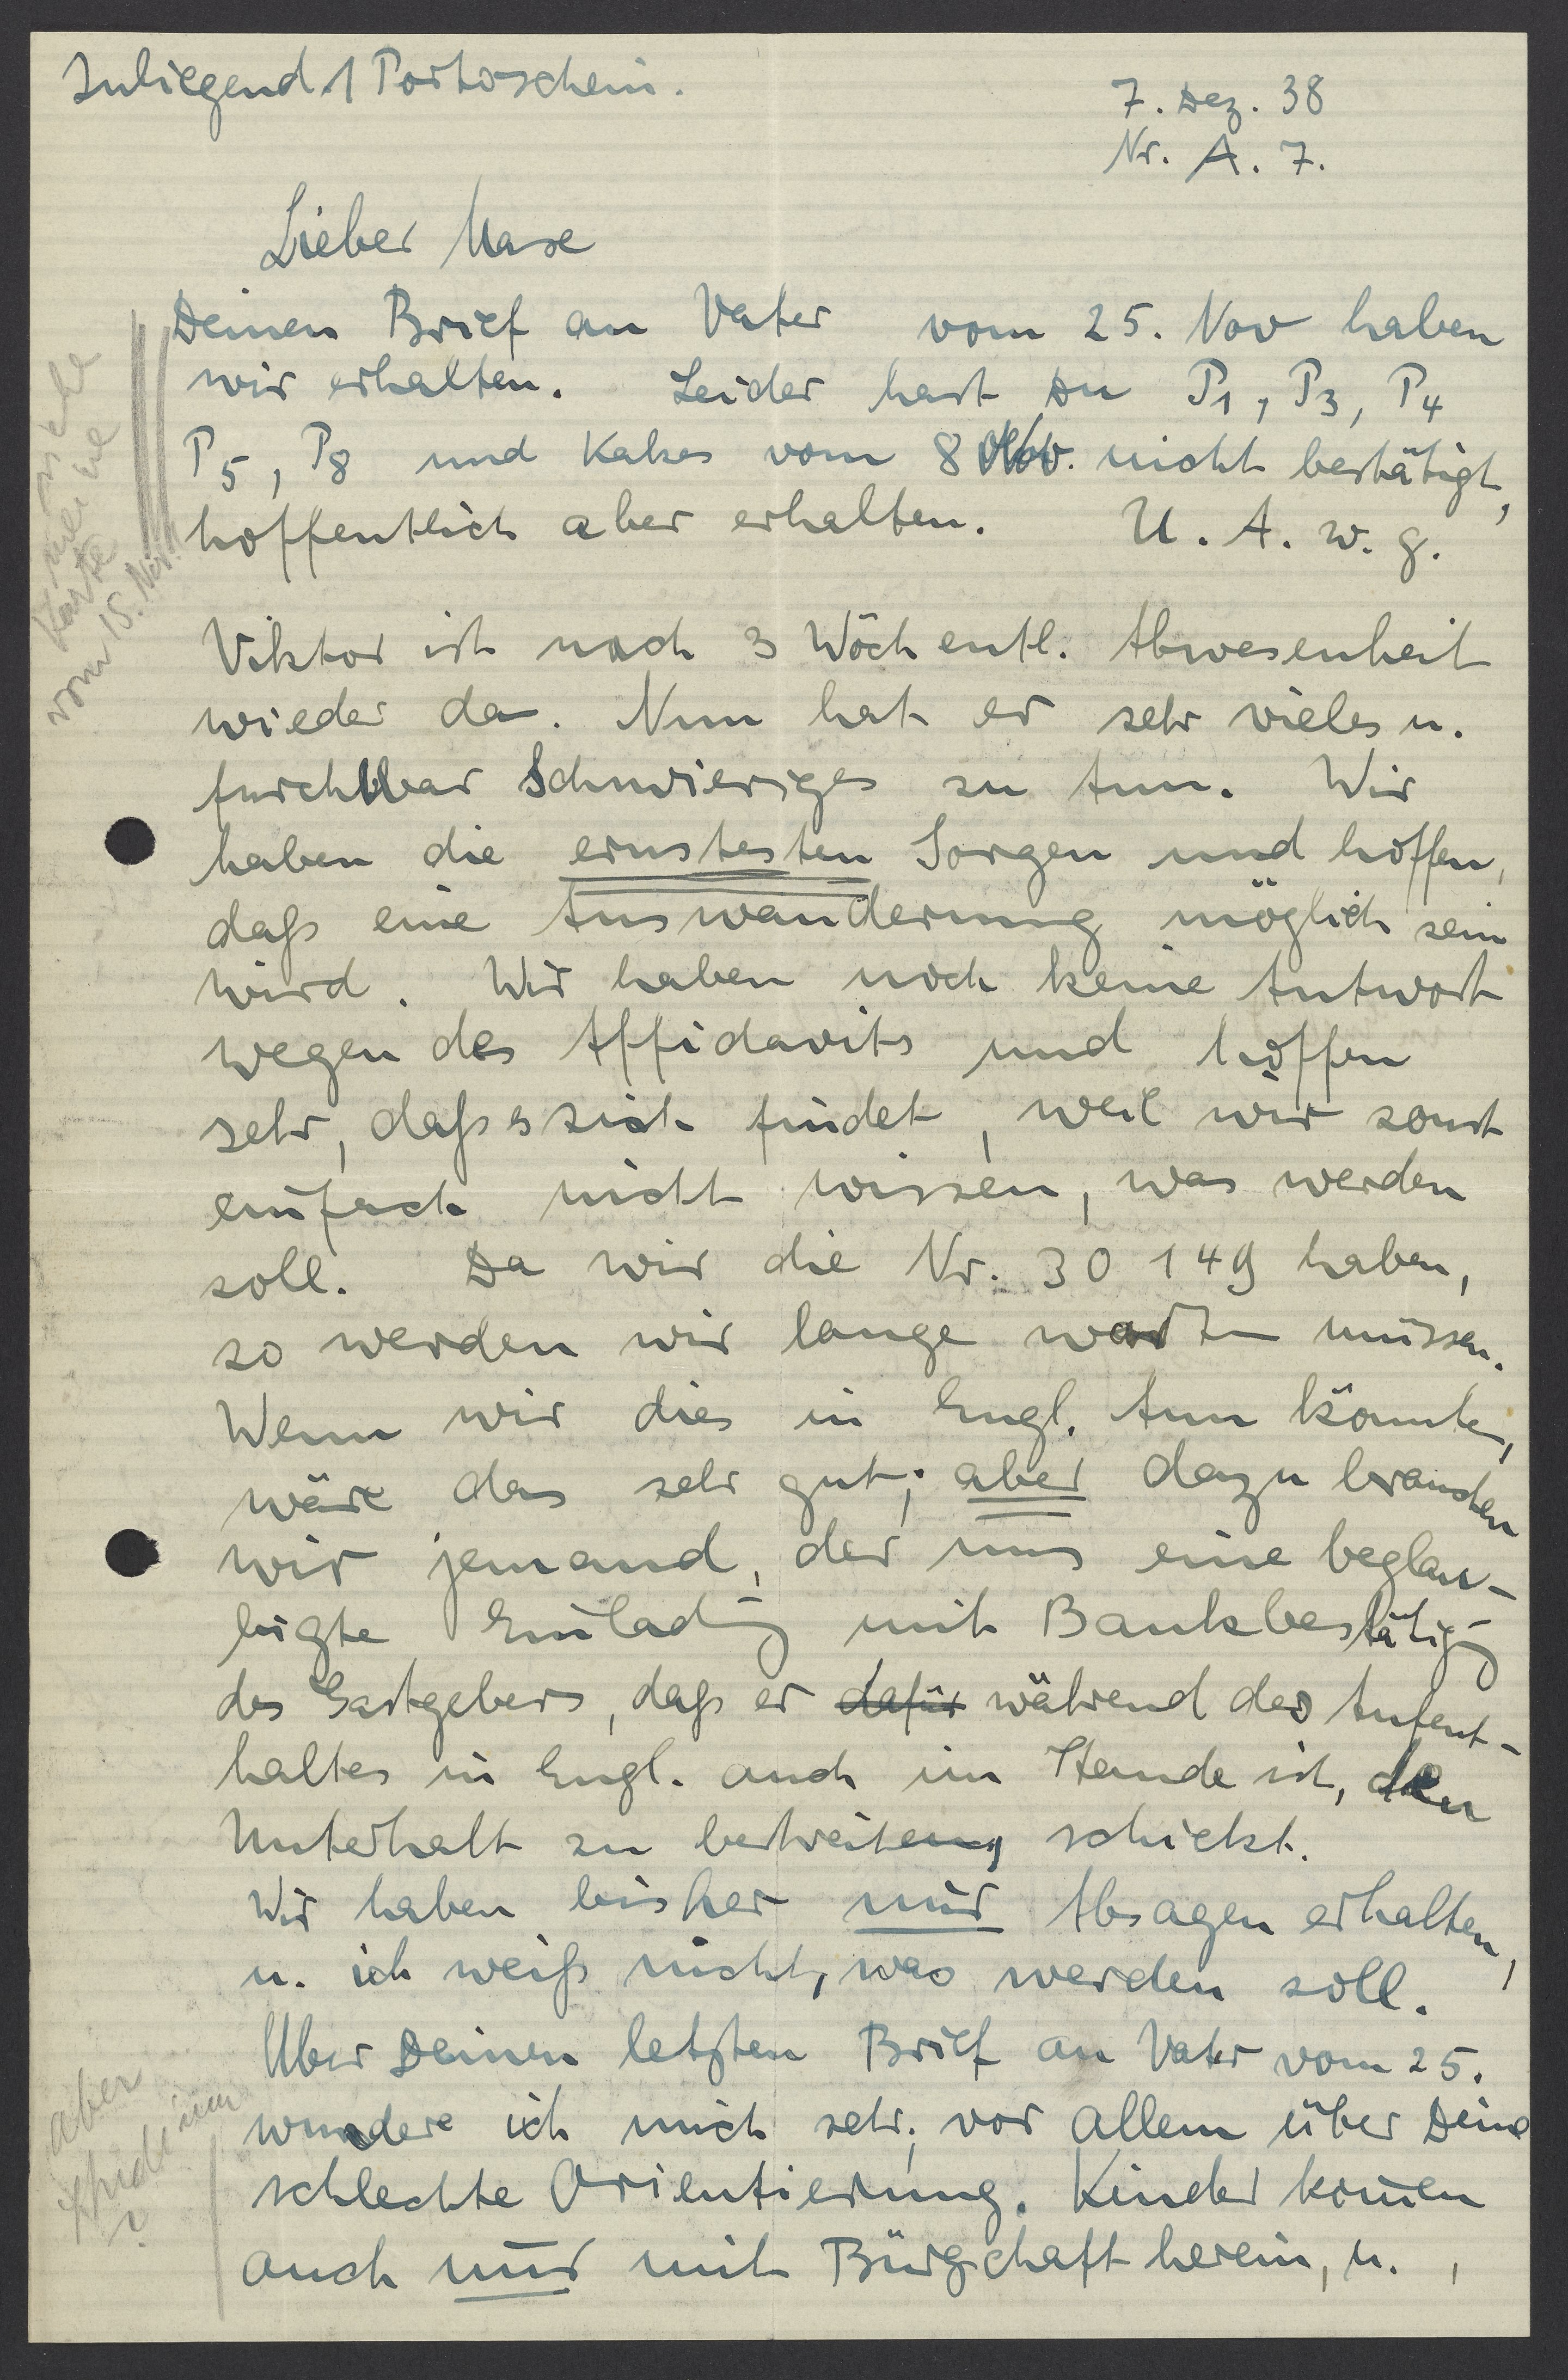 Inliegend 1 Portoschein.
7. Dez. 38
Nr. A. 7.
Lieber Maxe
Deinen Brief an Vater vom 25. Nov haben
wir erhalten. Leider hast Du P1, P3, P4
P5, P8 und Kakes vom 8 Nov. nicht bestätigt,
hoffentlich aber erhalten. U. A. w. g.
siehe
meine
Karte
vom 15. Nov.
Viktor ist nach 3 Wöchentl. Abwesenheit
wieder da. Nun hat er sehr vieles u.
furchtbar Schwieriges zu tun. Wir
haben die ernstesten Sorgen und hoffen,
daß eine Auswanderung möglich sein
wird. Wir haben noch keine Antwort
wegen des Affidavits und hoffen
sehr, daß es sich findet, weil wir sonst
einfach nicht wissen, was werden
soll. Da wir die Nr. 30 149 haben,
so werden wir lange warten müssen.
Wenn wir dies in Engl. tun könnten,
wäre das sehr gut; aber dazu brauchen
wir jemand, der uns eine beglau-
bigte Einladg mit Bankbestätigg
des Gastgebers, daß er dafür während des Aufent-
haltes in Engl. auch im Stande ist, den
Unterhalt zu bestreiten, schickt.
Wir haben bisher nur Absagen erhalten,
u. ich weiß nicht, was werden soll.
Über Deinen letzten Brief an Vater vom 25.
wundere ich mich sehr, vor allem über Deine
schlechte Orientierung. Kinder komen
auch nur mit Bürgschaft herein, u. ,
aber